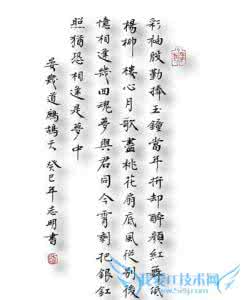 彩袖殷勤捧玉鐘當年拚却醉顏紅舞低
楊柳樓心月歌盡桃花扇底風從別後
憶相逢幾回魂夢與君同今宵剩把銀釭
照猶恐相逢是夢中
晏幾道鷓鴣天 癸巳年志明書
我爱IT技术网